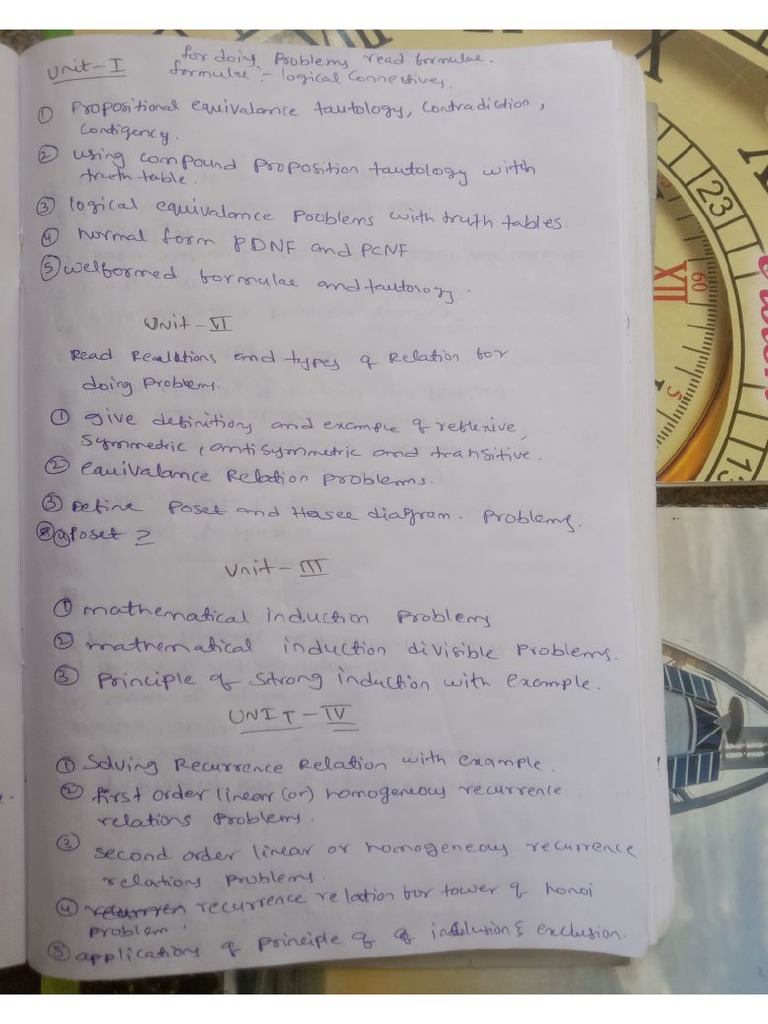 for doing Problems read formulae.
Unit-I
formulae :- logical Connectives.
① Propositional equivalance tautology, Contradiction,
Contigency.
② using compound Proposition tautology with
truth table.
③ logical equivalance Pooblems with truth tables.
④ normal form PDNF and PCNF
⑤ welformed formulae and tautology.
Unit-VI
Read Realations and types of Relation for
doing Problems.
① give definitions and example of reflexive,
Symmedric, antisymmetric and transitive.
② equivalance Relation problems.
③ Define Poset and Hasee diagram. Problems.
Poset ?
Unit-III
① mathematical induction Problems
② mathematical induction divisible Problems.
③ Principle of Strong induction with example.
UNIT-IV
① Solving Recurrence Relation with example.
② first order linear (or) homogeneous recurrence
relations Problems.
③ second order linear or homogeneous recurrence
relations problems.
④ recurrence relation for tower of honoi
problem.
⑤ applications of principle of of inclution & exclusion.
23
XII
60
5
13
X